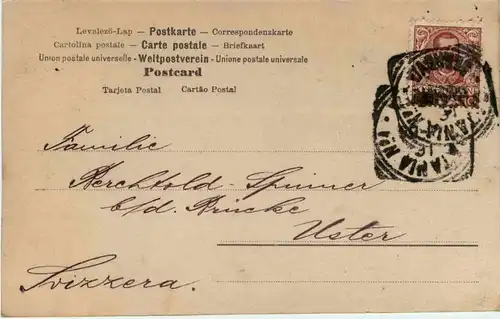 Levelező-Lap — Postkarte — Correspondenzkarte
Cartolina postale — Carte postale — Briefkaart
Union postale universelle - Weltpostverein - Unione postale universale
Postcard
Tarjeta Postal Cartão Postal
Familie
Berchtold-Spinner
b/d. Brücke
Uster
Svizzera.